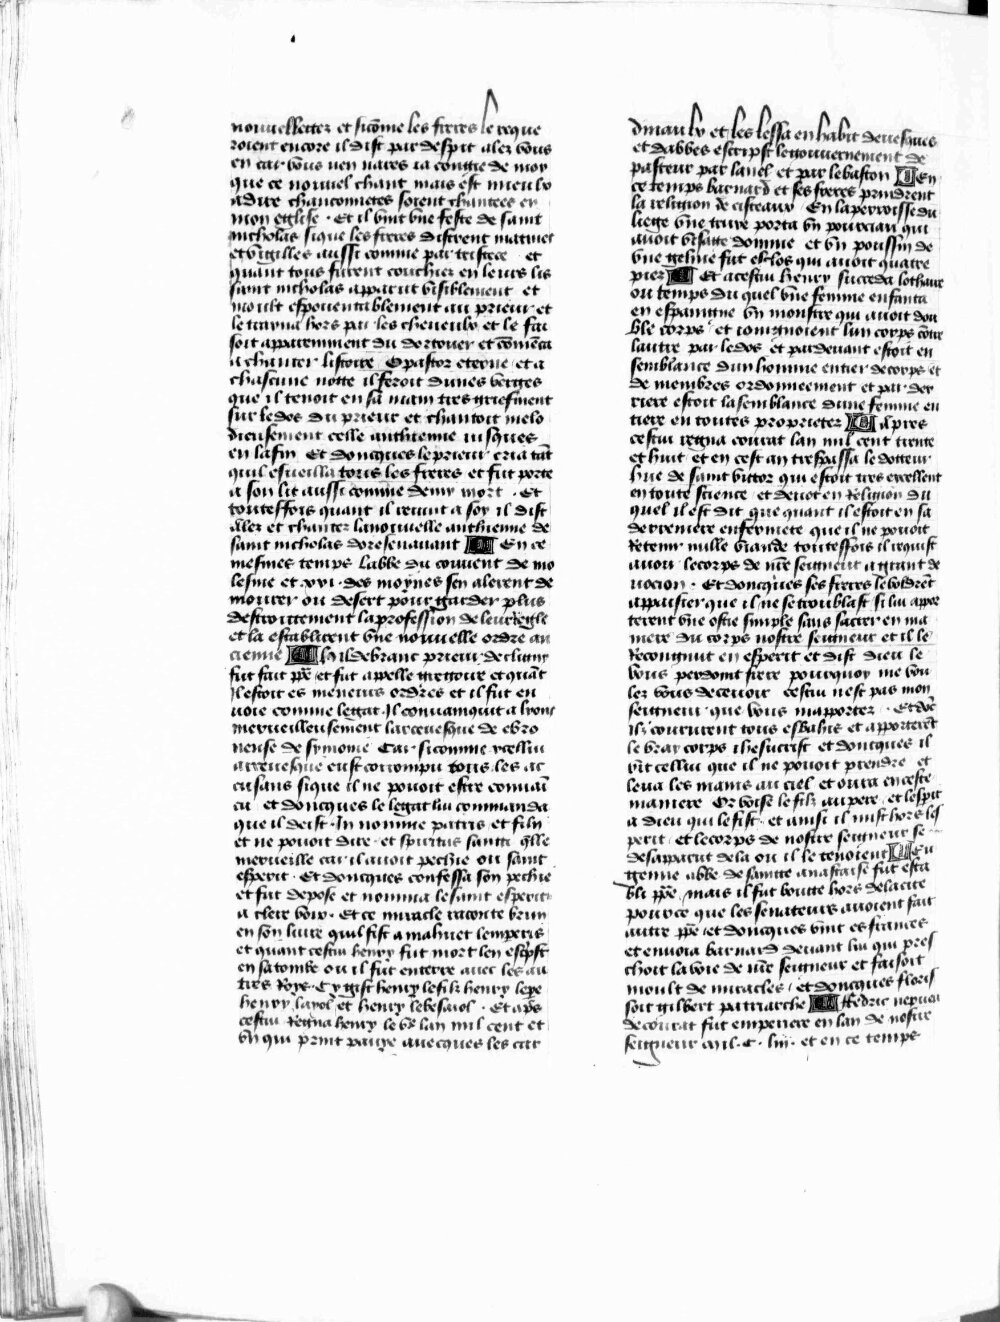 nouuellettes et sicōme les freres le reque
roient encore il dist par despit alez vous
en car vous nen nares ia congie de moy
que ce nouuel chant mais est mieulx
a dire chanconnetes soient chantees en
mon eglise · Et il vint vne feste de saint
nicholas si que les freres distrent matines
et vigilles aussi comme par tristece · et
quant tous furent couchies en leurs lis
saint nicholas apparut visiblement et
moult espouentablement au prieur et
le trayna hors par les cheueulx et le fai
soit apparemment du dortouer et cōmēca
a chanter listoire O pastor eterne et a
chascune notte il feroit dunes verges
que il tenoit en sa main tres griefment
sur le dos du prieur et chantoit melo
dieusement celle anthienne iusques
en la fin Et doncques le prieur cria tāt
quil esueilla tous les freres et fut porte
a son lit aussi comme demy mort · Et
touteffois quant il reuint a soy il dist
allez et chantez la nouuelle anthienne de
saint nicholas doresenauant En ce
mesmes temps labbe du couuent de mo
lesme et .xxi. des moynes sen alerent de
mourer ou desert pour garder plus
destroittement la profession de leur Regle
et la establirent vne nouuelle ordre an
cienne hildebrant prieur de cligny
fut fait ppē et fut appelle gregoire et quāt
il estoit es meneurs ordres et il fut en
uoie comme legat · Il conuainquit a lyons
merueilleusement larceuesque de ebro
nense de symonie Car sicomme ycellui
arceuesque eust corrompu tous les ac
cusans si que il ne pouoit estre conuaī
cu et doncques le legat lui commanda
que il deist · In nomine patris et filij
et ne pouoit dire · et spiritus sancti q̄lle
merueille car il auoit pechie ou saint
esperit · Et doncques confessa son pechie
et fut depose et nomma le saint esperit
a clere voix · Et ce miracle raconte brun
en son liure quil fist a mahuet lemperis
et quant cestui henry fut mort len escpst
en sa tombe ou il fut enterre auec les au
tres Roys · Cy gist henry le filz henry le pe
henry layol et henry le besaiol · Et aps
cestui Regna henry le ve lan mil cent et
vn qui print pappe auecques les car
dinaulx et les lessa en habit deuesques
et dabbes escript le gouuernement de
pasteur par lanel et par le baston En
ce temps barnard et ses freres prindrent
la religion de cisteaux En la perroisse du
liege vne truye porta vn pourciau qui
auoit visaige domme et vn poussin de
vne geline fut esclos qui auoit quatre
piez Et a cestui henry succeda lothaire
ou temps du quel vne femme enfanta
en espaingne vn monstre qui auoit dou
ble corps et ioingnoient lun corps cōtre
lautre par le dos et par deuant estoit en
semblance dun homme entier de corps et
de membres ordonneement et par der
riere estoit la semblance dune femme en
tiere en toutes proprietez Apres
cestui regna conrat lan mil cent trente
et huit et en cest an trespassa le docteur
hue de saint victor qui estoit tres excellent
en toute science et deuot en Religion du
quel il est dit que quant il estoit en sa
derreniere enfermete que il ne pouoit
Retenir nulle viande touteffois il requist
auoir le corps de nr̄e seigneur a grant de
uocion · Et doncques ses freres le voldrēt
appaisier que il ne se troublast si lui appor
terent vne ostie simple sans sacrer en ma
niere du corps nostre seigneur et il le
Recongnut en esperit et dist dieu le
vous perdoint frere pourquoy me vou
lez vous deceuoir cestui nest pas mon
seigneur que vous mapportez · Et dōc
ilz coururent tous esbahis et apporterēt
le vray corps ihesucrist et doncques il
vit cellui que il ne pouoit prendre et
leua les mains au ciel et oura en ceste
maniere Or voise le filz au pere et lespit
a dieu qui le fist et ainsi il mist hors les
perit et le corps de nostre seigneur se
desapparut de la ou il le tenoient Eu
genne abbe de saincte anastaise fut esta
bli ppē mais il fut boutte hors de la cite
pource que les senateurs auoient fait
autre ppē et doncques vint es frances
et enuoia barnard deuant lui qui pres
choit la voie de nr̄e seigneur et faisoit
moult de miracles et doncques floris
soit gilbert patriarche Fedric nepueu
de conrat fut emperiere en lan de nostre
seigneur mil .c. liii. et en ce temps